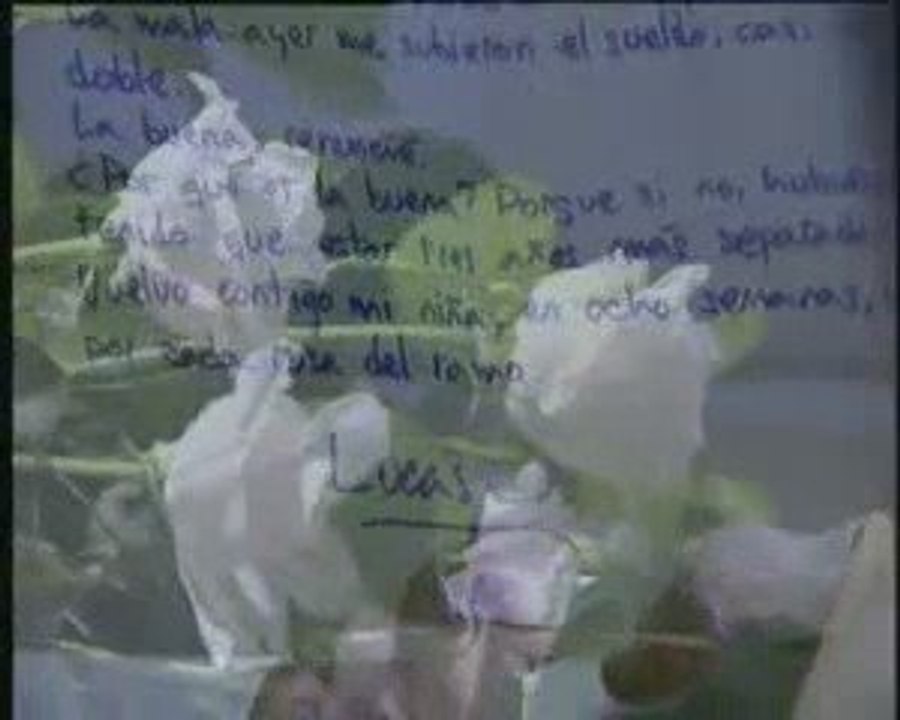 La mala ayer me subieron el sueldo, casi
doble.
La buena, renuncié.
¿Por qué es la buena? Porque si no, hubiera
tenido que estar tres años más separado
Vuelvo contigo mi niña, en ocho semanas,
por cada del
Lucas